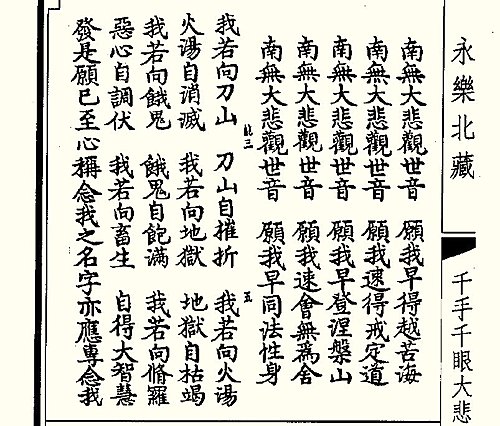 永樂北藏
千手千眼大悲
南無大悲觀世音 願我早得越苦海
南無大悲觀世音 願我速得戒定道
南無大悲觀世音 願我早登涅槃山
南無大悲觀世音 願我速會無爲舍
南無大悲觀世音 願我早同法性身
能三 五
我若向刀山 刀山自摧折 我若向火湯
火湯自消滅 我若向地獄 地獄自枯竭
我若向餓鬼 餓鬼自飽滿 我若向脩羅
惡心自調伏 我若向畜生 自得大智慧
發是願已至心稱念我之名字亦應專念我